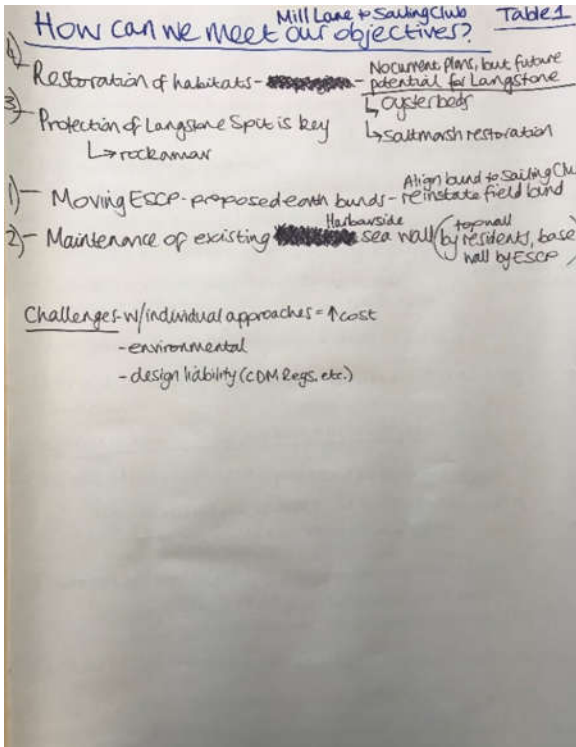 Mill Lane to Sailing Club Table 1
How can we meet our objectives?
4) Restoration of habitats - - No current plans, but future
potential for Langstone
↳ Oyster beds
↳ saltmarsh restoration
3) Protection of Langstone Spit is key
↳ rock armour
1) - Moving ESCP - proposed earth bunds - Align bund to Sailing Clu
reinstate field bund
2) - Maintenance of existing Harbourside sea wall (top wall
by residents, base
wall by ESCP)
Challenges - w/individual approaches = ↑ cost
- environmental
- design liability (CDM Regs. etc.)